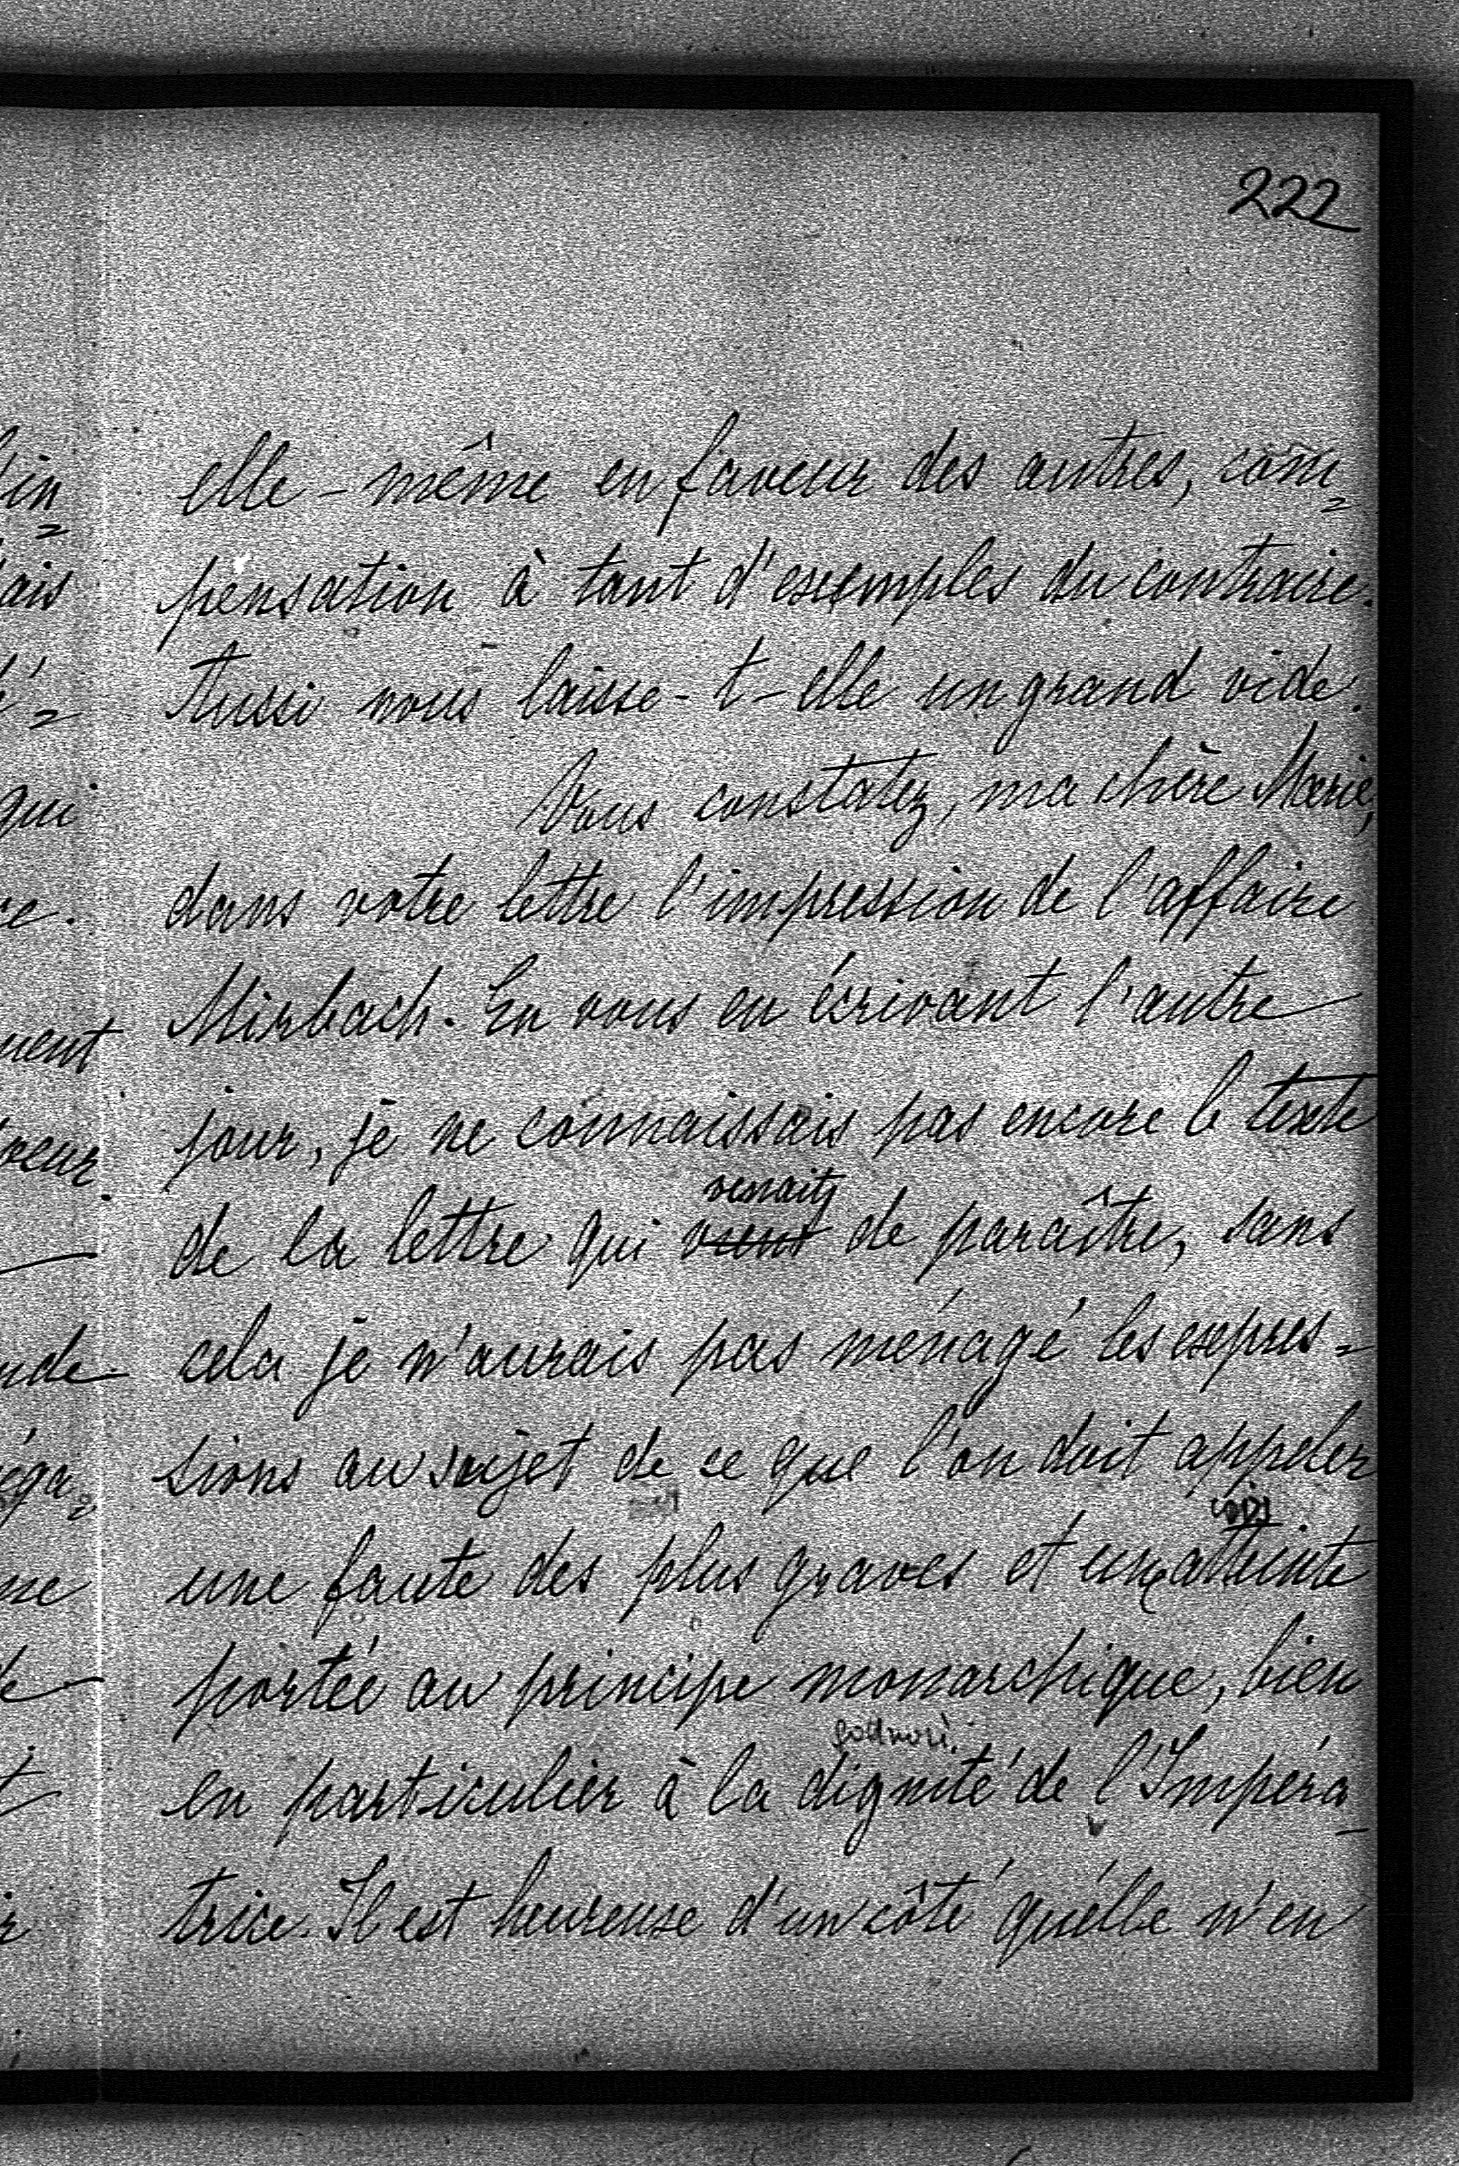 222
elle-même en faveur des autres, com=
pensation à tant d'exemples du contraire.
Aussi nous laisse-t-elle un grand vide.
Vous constatez, ma chère Marie,
dans votre lettre l'impression de l'affaire
Mirbach. En vous en écrivant l'autre
jour, je ne connaissais pas encore le texte
venait
de la lettre qui vient de paraître, sans
cela je n'aurais pas ménagé les expres=
sions au sujet de ce que l'on doit appeler
une faute des plus graves et une atteinte
portée au principe monarchique, bien
en particulier à la dignité de l'Impéra-
trice. Il est heureuse d'un côté qu'elle n'en